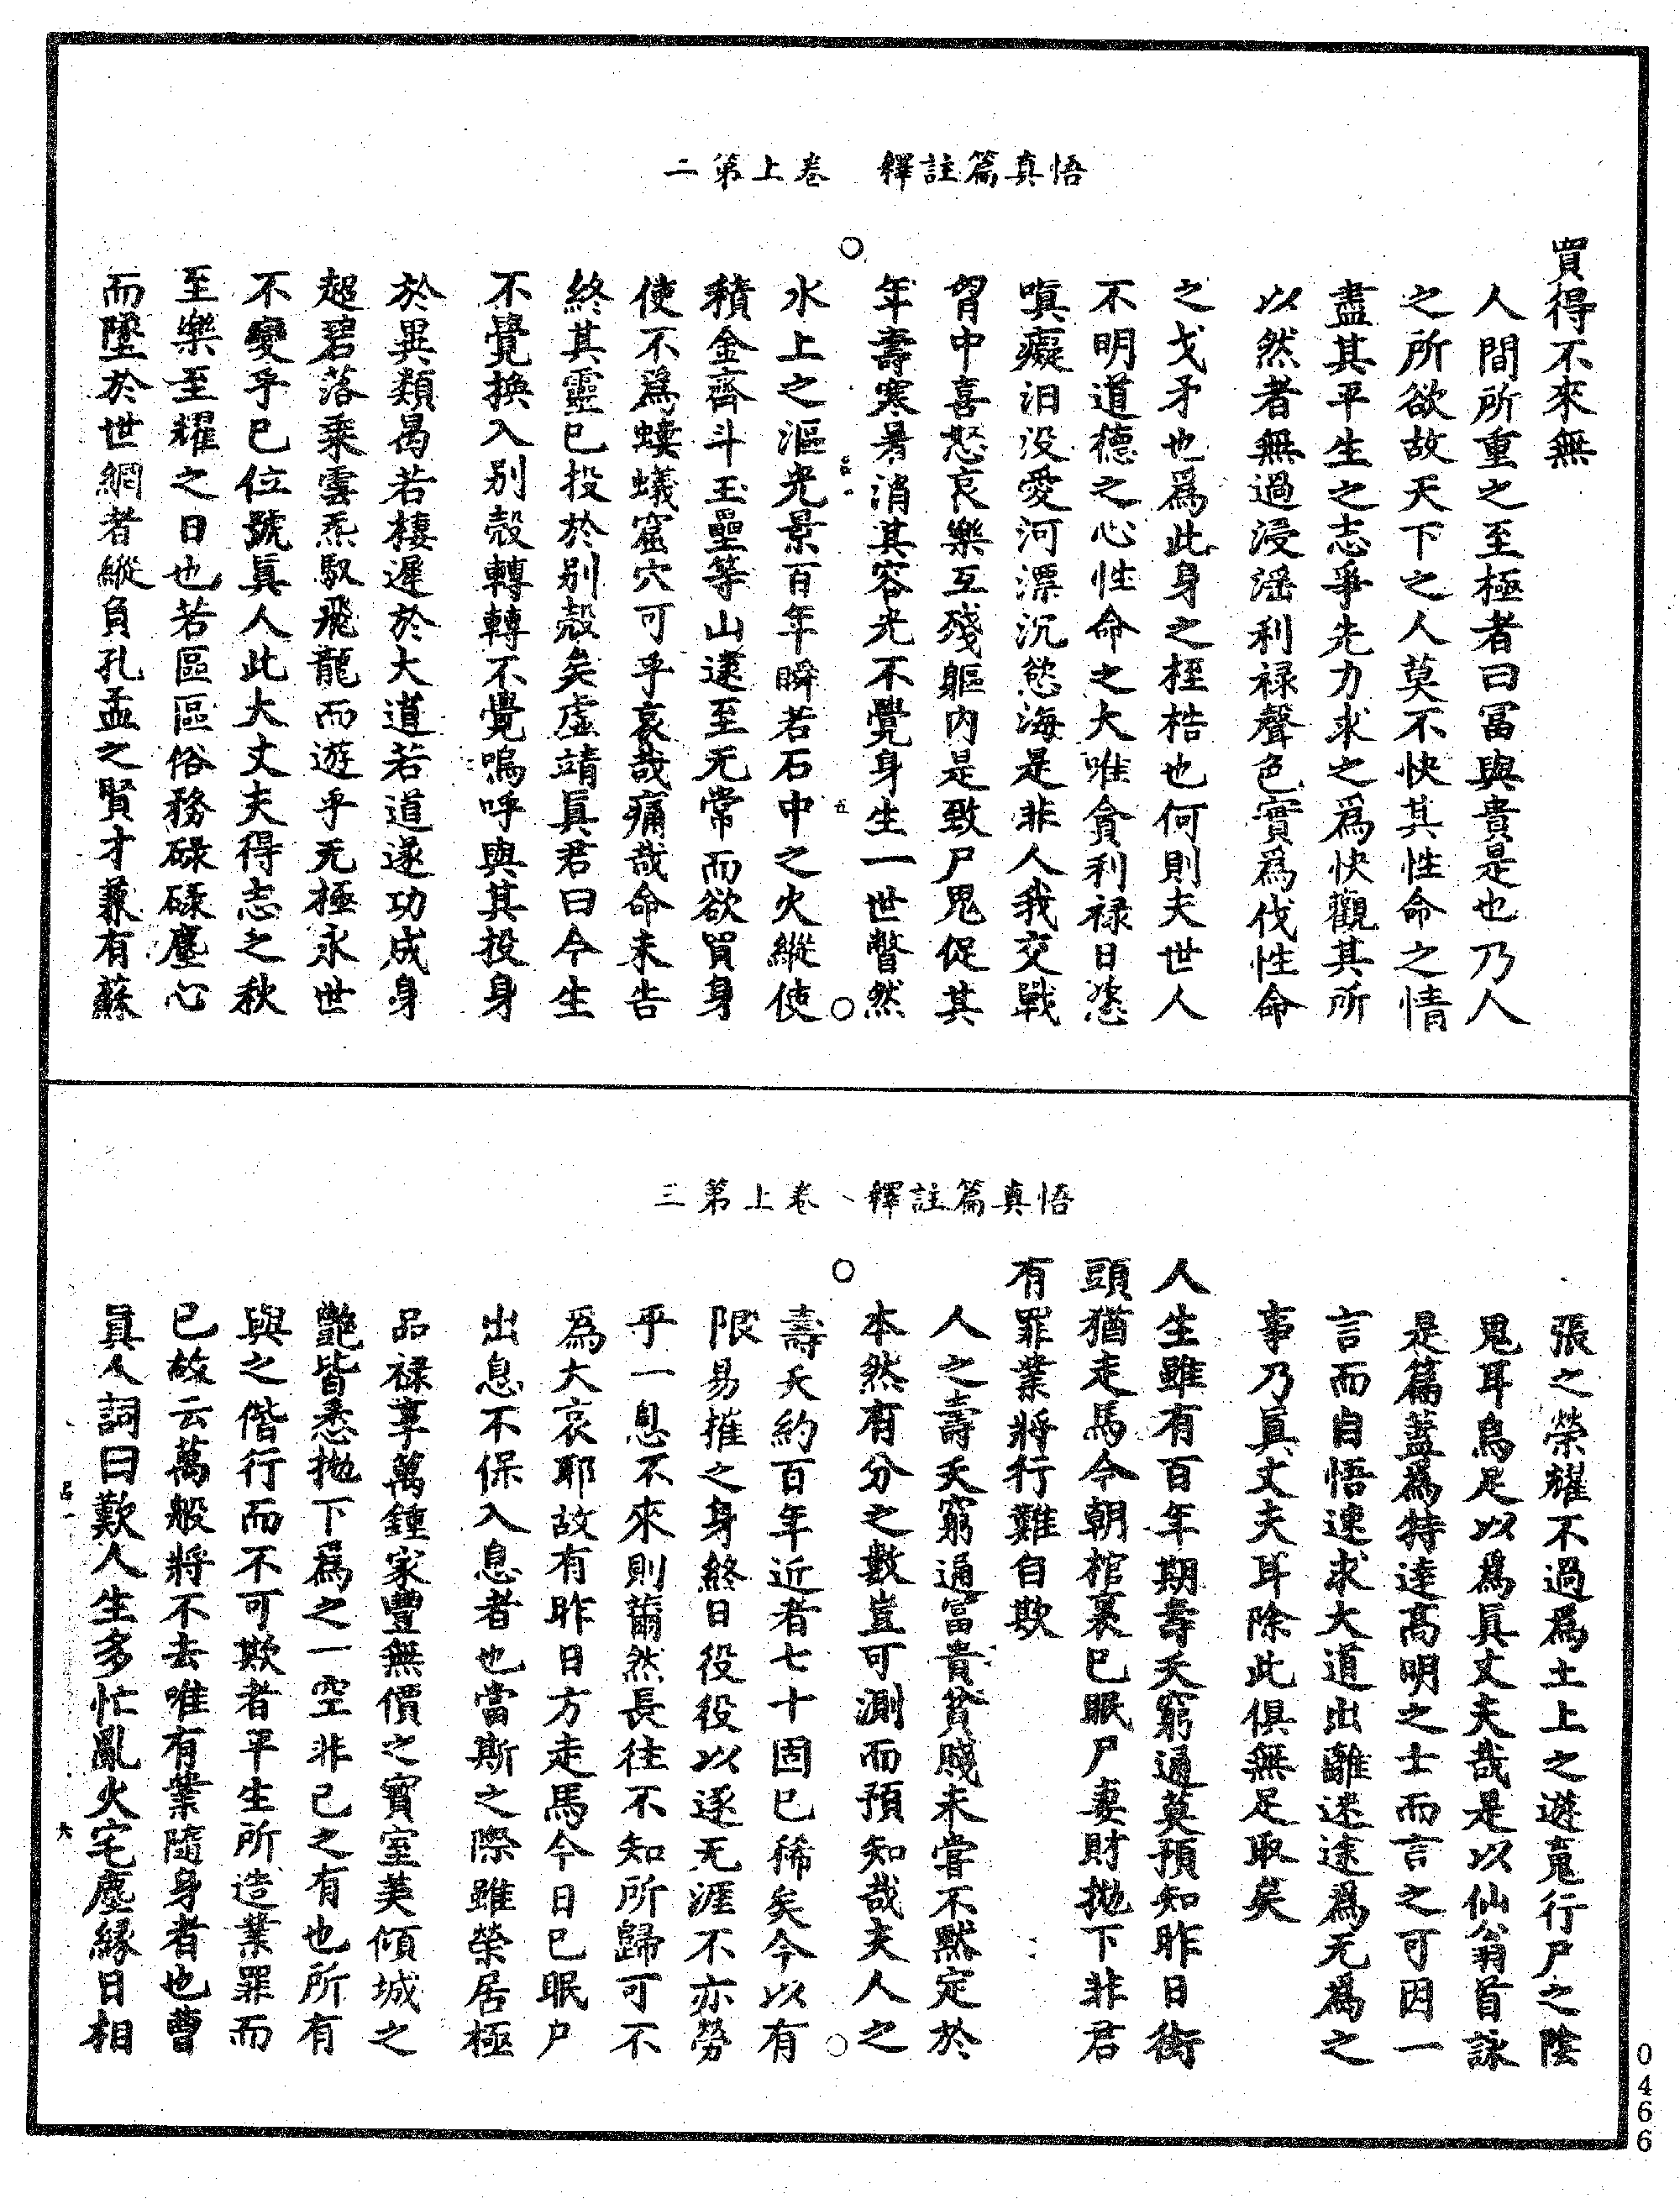 悟真篇註釋　卷上第二
買得不來無
人間所重之至極者曰冨與貴是也乃人
之所欲故天下之人莫不快其性命之情
盡其平生之志爭先力求之為快觀其所
以然者無過浸滛利禄聲色實為伐性命
之戈矛也為此身之桎梏也何則夫世人
不明道德之心性命之大唯貪利禄日恣
嗔癡汨没愛河漂沉慾海是非人我交戰
胷中喜怒哀樂互殘軀内是致尸鬼促其
年壽寒暑消其容光不覺身生一世瞥然
水上之漚光景百年瞬若石中之火縱使
積金齊斗玉壘等山逮至无常而欲買身
使不為螻蟻窟穴可乎哀哉痛哉命未告
終其靈已投於别殻矣虚靖真君曰今生
不覺換入别殻轉轉不覺嗚呼與其投身
於異類曷若棲遲於大道若道遂功成身
超碧落乘雲炁馭飛龍而遊乎无極永世
不變乎已位號眞人此大丈夫得志之秋
至樂至耀之日也若區區俗務碌碌塵心
而墜於世網者縱負孔孟之賢才兼有蘇
悟真篇註釋　卷上第三
張之榮耀不過為土上之遊䰟行尸之陰
鬼耳烏足以為眞丈夫哉是以仙翁首詠
是篇葢為特達髙明之士而言之可因一
言而自悟速求大道出離迷途為无為之
事乃眞丈夫耳除此俱無足取矣
人生雖有百年期壽夭窮通莫預知昨日街
頭猶走馬今朝棺裏已眠尸妻財拋下非君
有罪業將行難自欺
人之壽夭窮通富貴貧賤未嘗不黙定於
本然有分之數豈可測而預知哉夫人之
壽夭約百年近者七十固已稀矣今以有
限易摧之身終日役役以逐无涯不亦勞
乎一息不來則薾然長往不知所歸可不
為大哀耶故有昨日方走馬今日已眠尸
出息不保入息者也當斯之際雖榮居極
品禄享萬鍾家豐無價之寳室美傾城之
艷皆悉拋下為之一空非已之有也所有
與之偕行而不可欺者平生所造業罪而
已故云萬般將不去唯有業隨身者也曹
眞人詞曰歎人生多忙亂火宅塵縁日相
0466